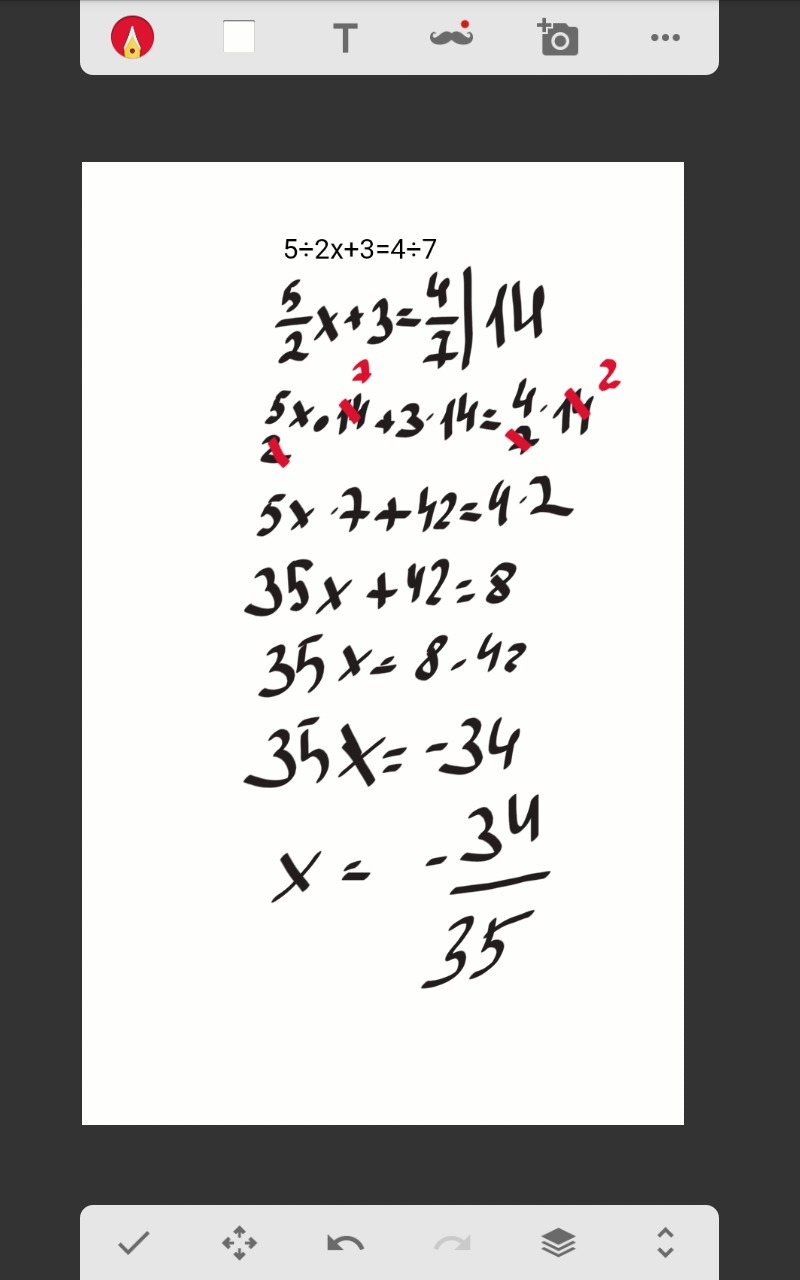 T
5÷2x+3=4÷7
5/2 x+3=4/7 | 14
7 2
5x/2 · 14 + 3 · 14 = 4/7 · 14
5x · 7 + 42 = 4 · 2
35x + 42 = 8
35x = 8 - 42
35x = -34
x = -34/35